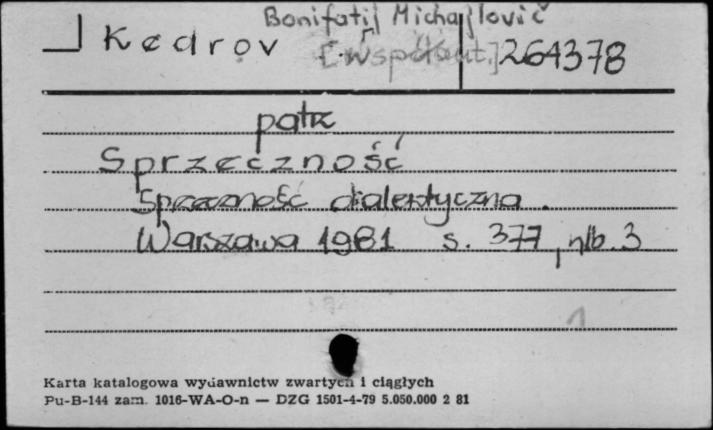 Bonifatij Michajlovič
Kedrov [współaut.] 264378
patrz
Sprzeczność
Sprzeczność dialektyczna.
Warszawa 1981 s. 377, nlb. 3
1
Karta katalogowa wydawnictw zwartych i ciągłych
Pu-B-144 zam. 1016-WA-O-n — DZG 1501-4-79 5.050.000 2 81